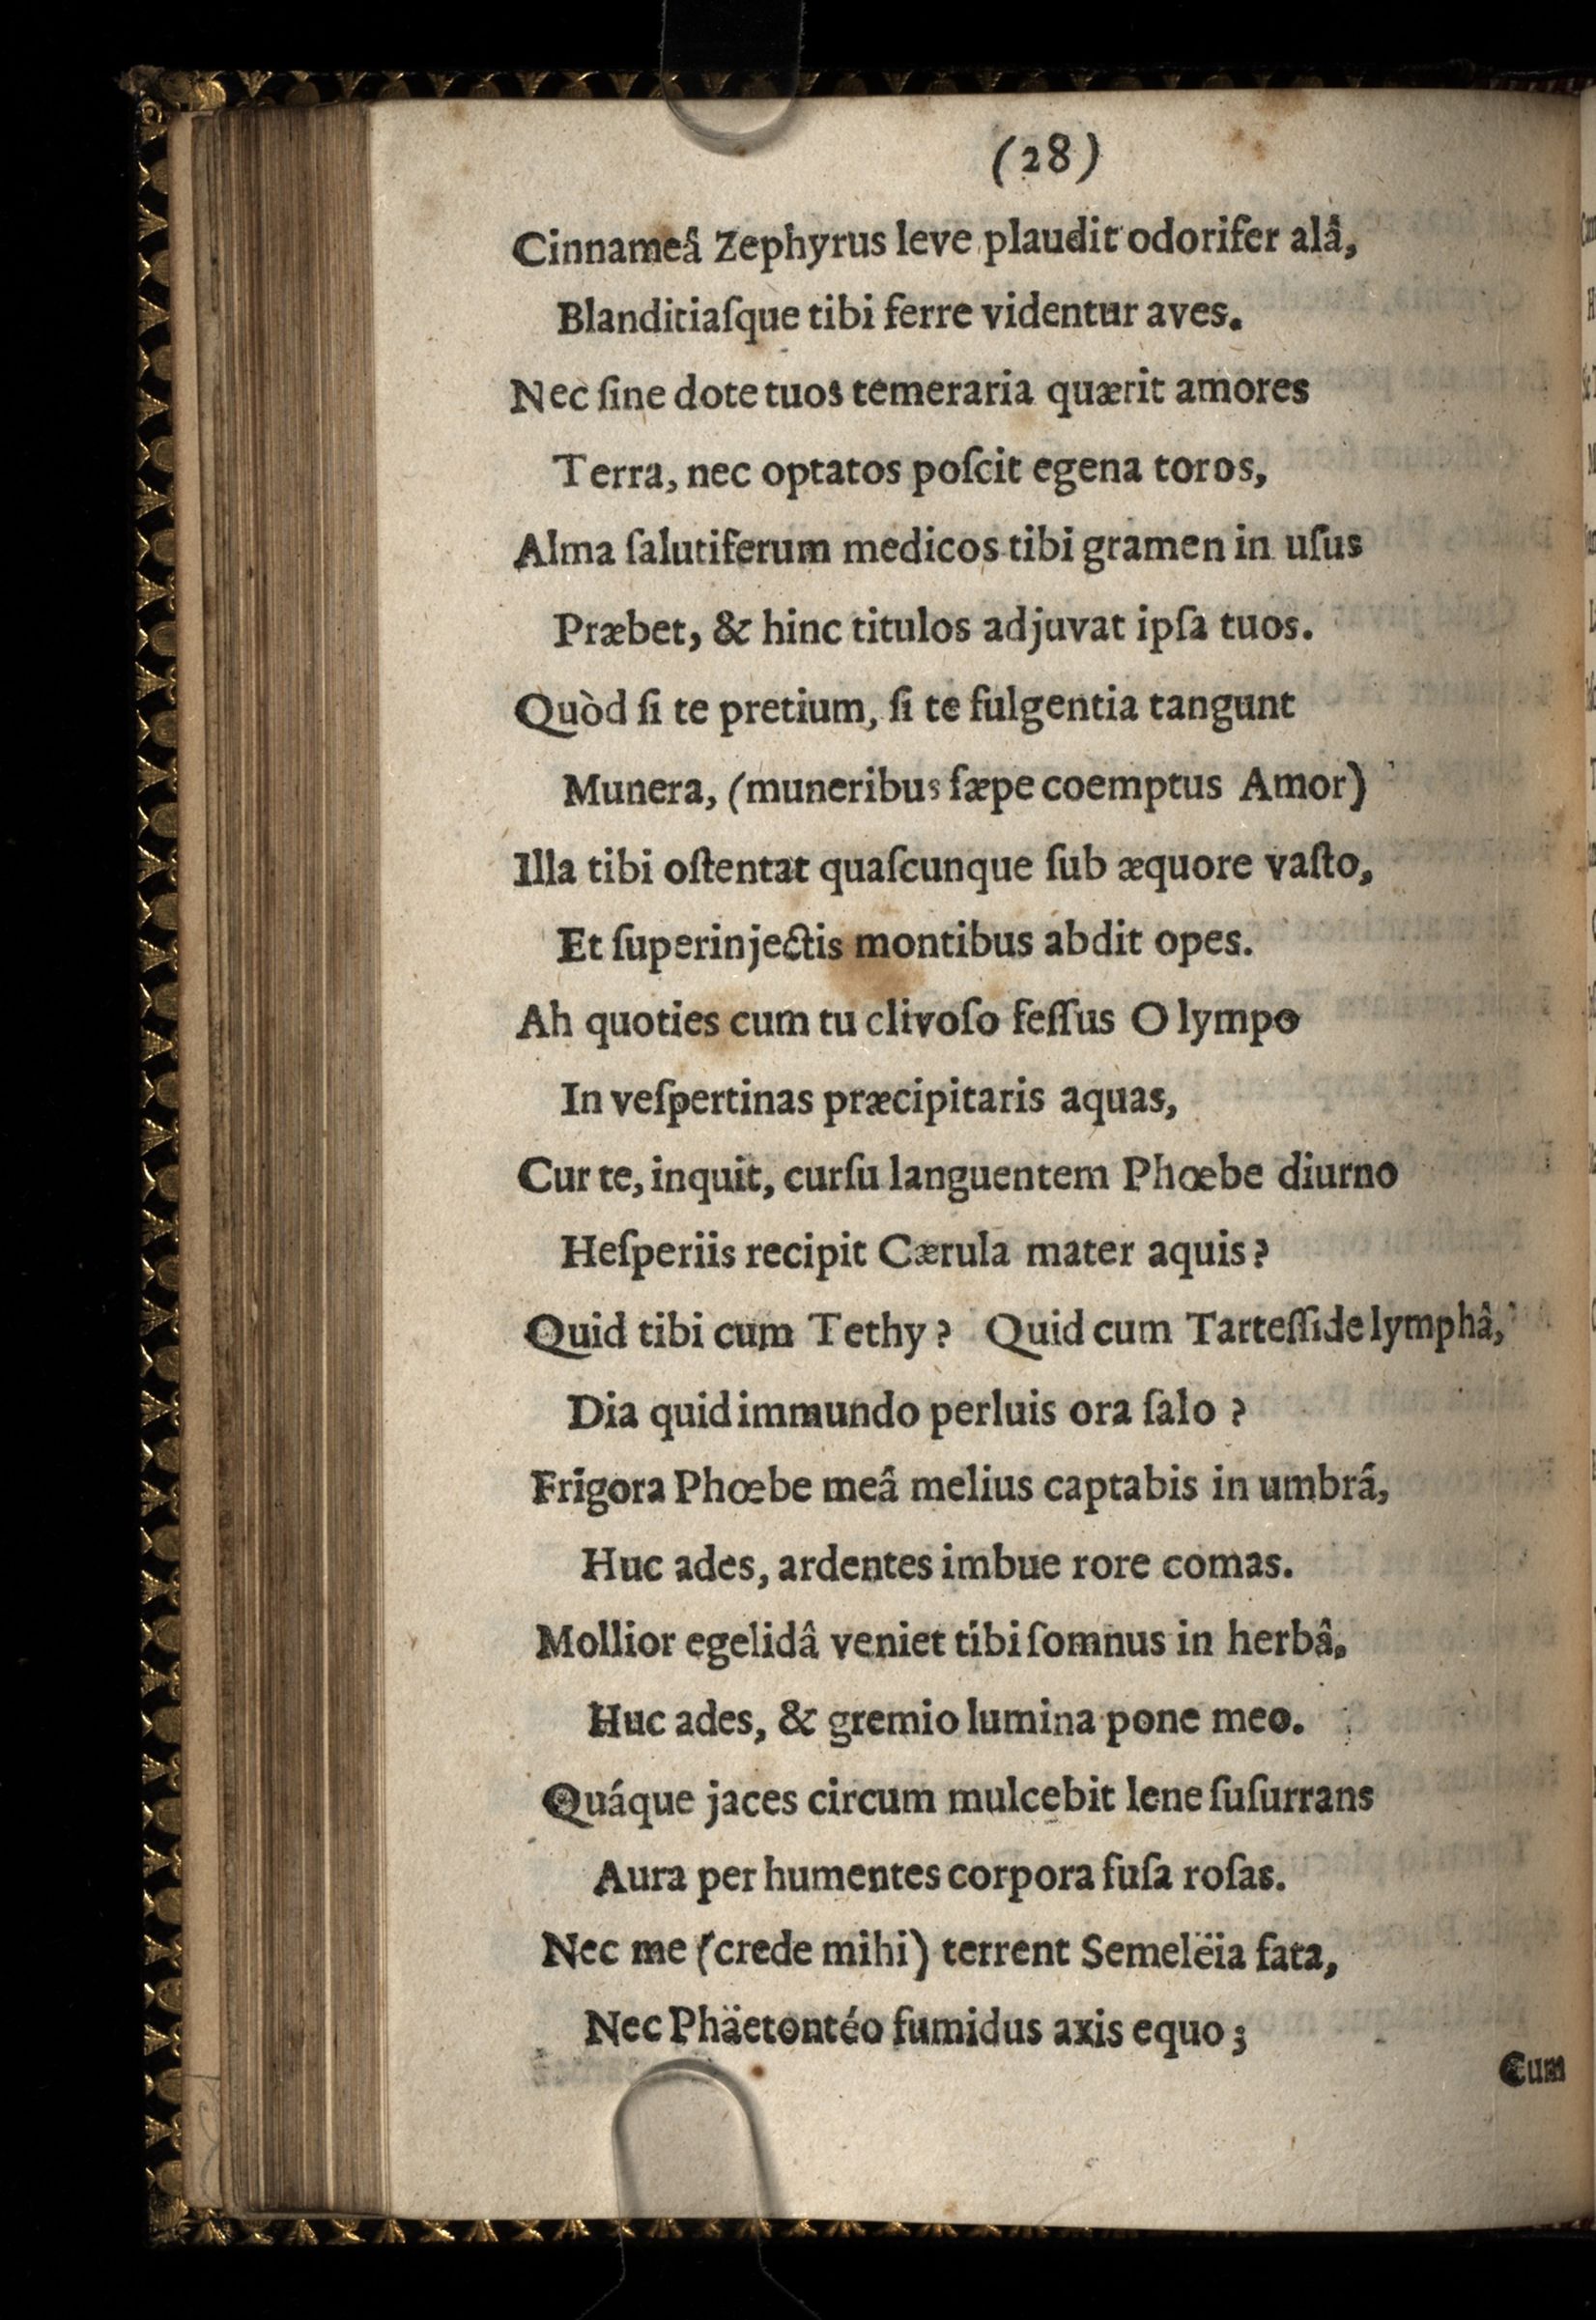 (28)
Cinnameâ Zephyrus leve plaudit odorifer alâ,
Blanditiaſque tibi ferre videntur aves.
Nec ſine dote tuos temeraria quærit amores
Terra, nec optatos poſcit egena toros,
Alma ſalutiferum medicos tibi gramen in uſus
Præbet, & hinc titulos adjuvat ipſa tuos.
Quòd ſi te pretium, ſi te fulgentia tangunt
Munera, (muneribus ſæpe coemptus Amor)
Illa tibi oſtentat quaſcunque ſub æquore vaſto,
Et ſuperinjectis montibus abdit opes.
Ah quoties cum tu clivoſo feſſus Olympo
In veſpertinas præcipitaris aquas,
Cur te, inquit, curſu languentem Phœbe diurno
Heſperiis recipit Cærula mater aquis?
Quid tibi cum Tethy? Quid cum Tarteſſide lymphâ,
Dia quid immundo perluis ora ſalo?
Frigora Phœbe meâ melius captabis in umbrâ,
Huc ades, ardentes imbue rore comas.
Mollior egelidâ veniet tibi ſomnus in herbâ,
Huc ades, & gremio lumina pone meo.
Quáque jaces circum mulcebit lene ſuſurrans
Aura per humentes corpora fuſa roſas.
Nec me (crede mihi) terrent Semelëia fata,
Nec Phäetontéo fumidus axis equo;
Cum